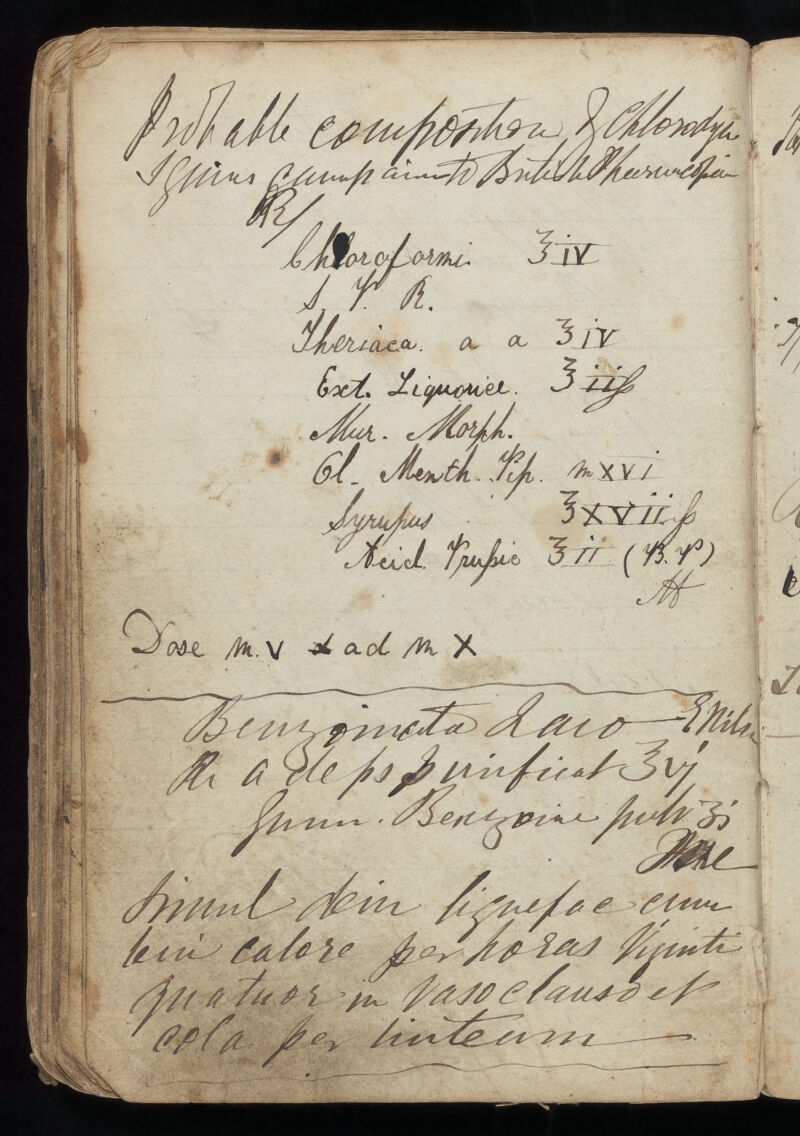 Probable composition of Chlorodyne
Squires companion to British Pharmacopiea
R/
Chloroformi. ʒiv
S. V. R.
Theriaca. a a ʒiv
Ext. Liquorice. ʒiiſs
Mur. Morph.
Ol. Menth. Pip. mxvi
Syrupus ʒxviiſs
Acid. Prussic ʒii (B. P)
Dose m. v ad m X
Benzoinata Lard
R. Adeps purificat ʒvj
Gum. Benzoine pulv ʒj
simul dein liquefac cum
leni calore per horas viginti
quatuor in vaso clauso et
cola per linteum